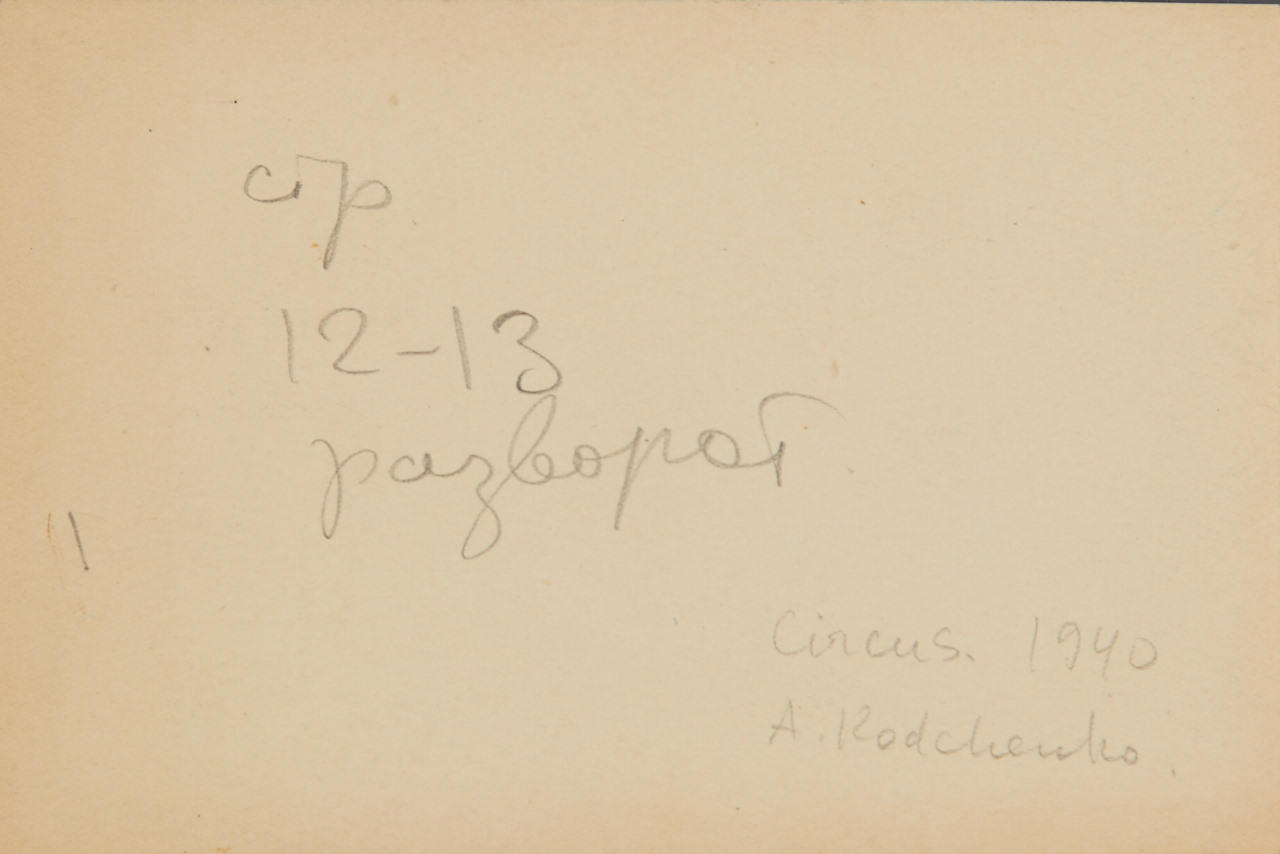 стр
12-13
разворот.
Circus. 1940
A. Rodchenko.